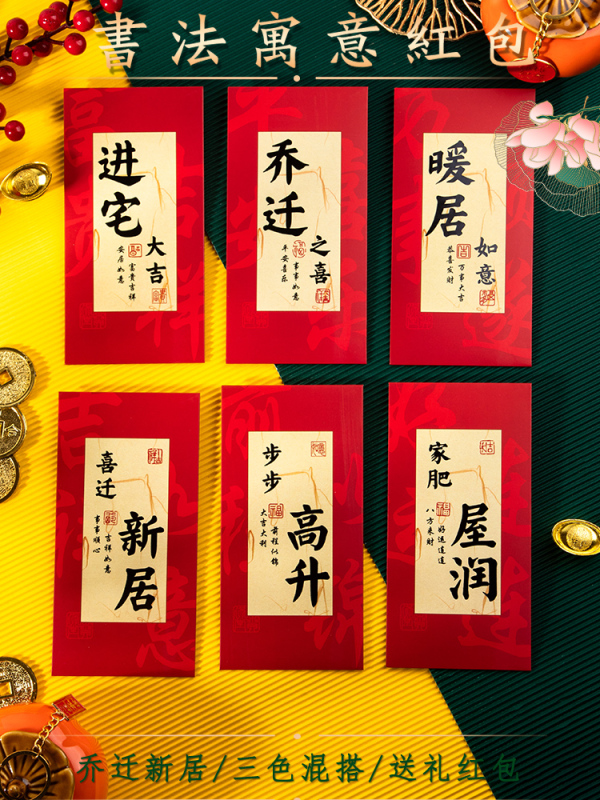 書法寓意紅包
进宅
大吉
富贵吉祥
安居如意
乔迁
之喜
事事如意
平安喜乐
暖居
如意
万事大吉
恭喜发财
喜迁
新居
吉祥如意
事事顺心
步步
高升
前程似锦
大吉大利
家肥
屋润
好运连连
八方来财
乔迁新居/三色混搭/送礼红包